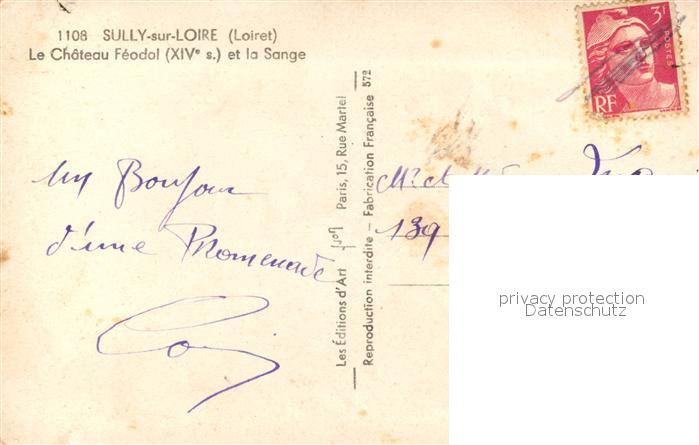 1108 SULLY-sur-LOIRE (Loiret)
Le Château Féodal (XIVe s.) et la Sange
3f
POSTES
RF
Un Bonjour
d'une Promenade
Les Éditions d'Art yvon Paris, 15, Rue Martel
Reproduction interdite – Fabrication Française 572
139
privacy protection
Datenschutz